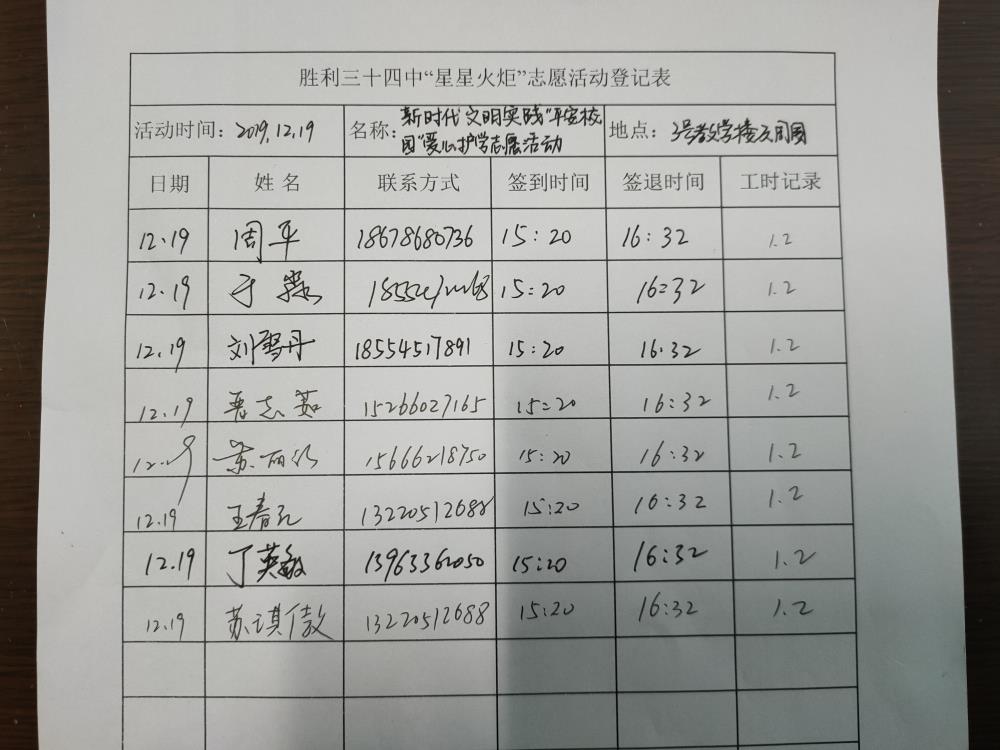 胜利三十四中“星星火炬”志愿活动登记表
活动时间：2019.12.19 名称：新时代文明实践“平安校园”爱心护学志愿活动 地点：3号教学楼及周围
日期 姓名 联系方式 签到时间 签退时间 工时记录
12.19 周平 18678680736 15：20 16：32 1.2
12.19 于 15：20 16：32 1.2
12.19 刘雪丹 18554517891 15：20 16.32 1.2
12.19 志茹 15266027165 15：20 16：32 1.2
12.19 苏丽 15666218750 15：20 16：32 1.2
12.19 王春 13220512688 15：20 16：32 1.2
12.19 丁英敏 13963362050 15：20 16：32 1.2
12.19 苏琪 13220512688 15：20 16：32 1.2